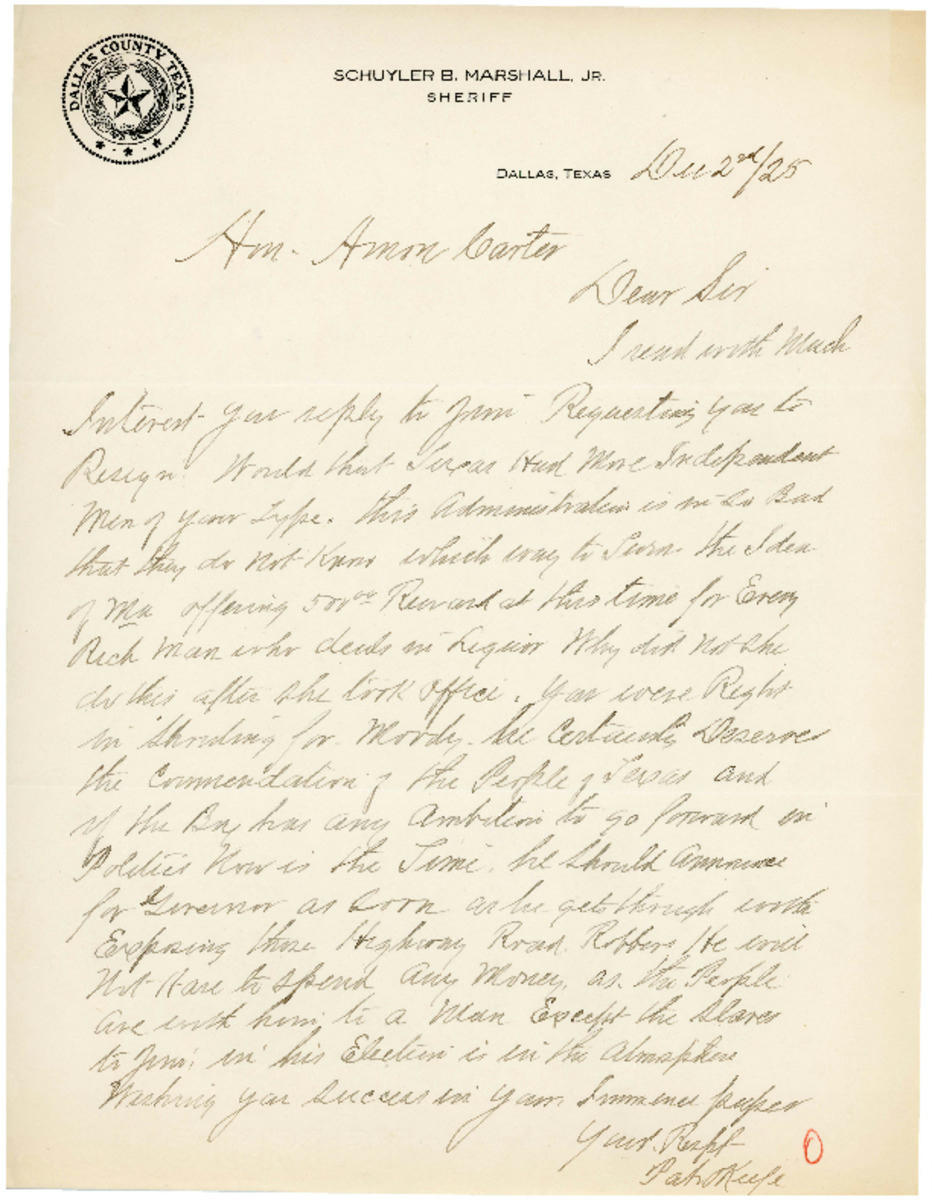 DALLAS COUNTY TEXAS
SCHUYLER B. MARSHALL, JR.
SHERIFF
DALLAS, TEXAS Dec 2nd/25
Hon. Amon Carter
Dear Sir
I read with Much
Interest your reply to Jim Requesting you to
Resign. Would that Texas Had More Independent
Men of your Type. This Administration is in So Bad
that they do Not Know which way to Turn. the Idea
of Ma offering 500.00 Reward at this time for Every
Rich Man who deals in Liquor Why did Not she
do this after she took office. You were Right
in for Moody. he Certainly Deserves
the Commendation of the People of Texas and
if the Boy has any Ambition to go forward in
Politics Now is the Time. he should Announce
for Governor as Soon as he gets through with
Exposing those Highway Road Robbers He will
Not Have to Spend Any Money, as the People
are with him to a Man Except the Slaves
to Jim, his Election is in the Atmosphere
Wishing you Success in your Immence paper
Your Respt
Pat OKeefe